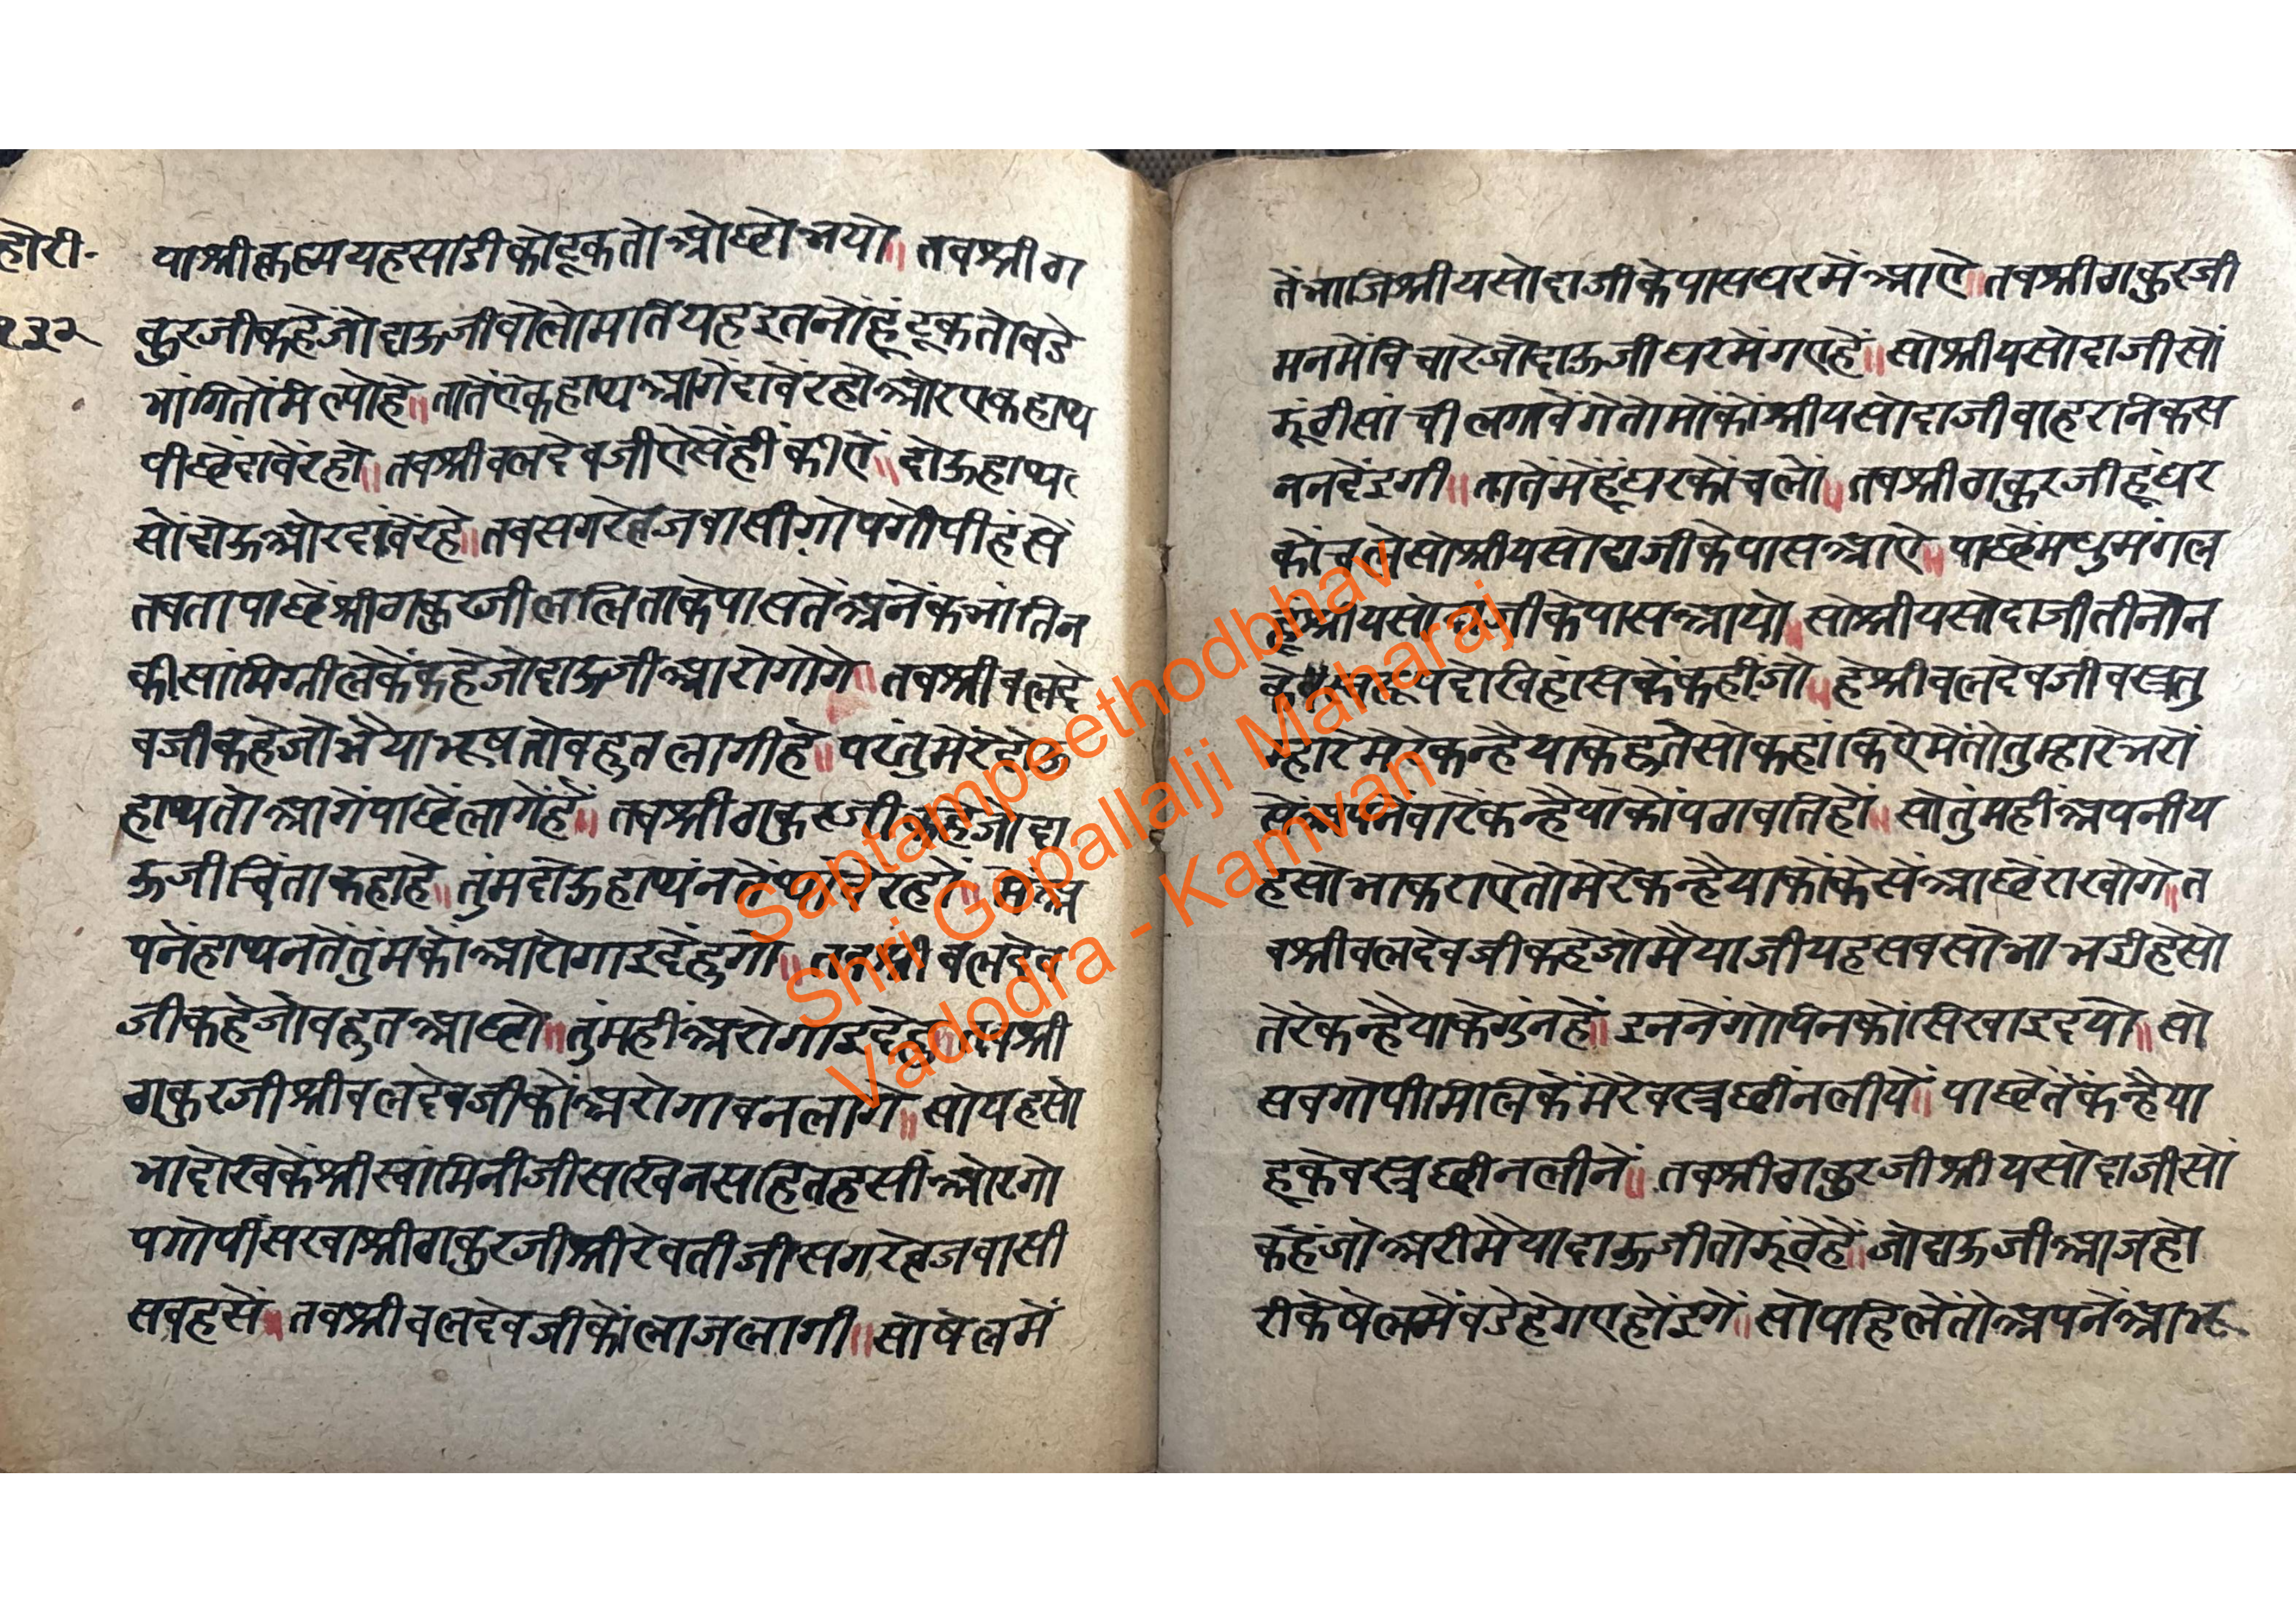 होरी॰
१३२
पाश्रीकृष्णयहसाडीकोटूकतोओछोभयो॥ तवश्रीठा
कुरजीकहेंजोदाऊजीवोलोमतियहइतनोंहूंटूकतोवडे
भांगितोंमिल्योहे॥तातेंऐकहाथआगेंदावेंरहोओरएकहाथ
पीछेंदावेंरहो॥तवश्रीवलदेवजीऐसेंहींकीऐं॥दोऊहाथ
सोंदोऊओरदावेंरहे॥तवसगरेव्रजवासीगोपगोपीहंसें
तवतापाछेंश्रीठाकुरजीललिताकेपासतेंअनेंकभांतिन
कीसामिग्रीलेकेंकहेजोदाऊजीआरोगोगे॥तवश्रीवलदे
वजीकहेजोभैयाभूषतोवहुतलागीहे॥परंतुमेरेदोऊ
हाथतोआगेंपाछेंलागेंहें॥तवश्रीठाकुरजीकहेजोदा
ऊजीचिंताकहाहे॥तुंमदोऊहाथंनतें रहो॥मेंअ
पनेंहाथनतेंतुंमकोंआरोगाइदेंहुगो॥तवश्रीवलदेव
जीकहेजोवहुतआछो॥तुंमहींअरोगाइदेहु॥तवश्री
ठाकुरजीश्रीवलदेवजीकोंअरोगावनलागे॥सोयहसो
भादेखिकेंश्रीस्वामिनीजीसखिनसहितहसींओरगो
पगोपींसखाश्रीठाकुरजीश्रीरेवतीजीसगरेव्रजवासी
सवहसें॥तवश्रीवलदेवजीकोंलाजलागी॥सोषेलमें
तेंभाजिश्रीयसोदाजीकेपासघरमेंआऐ॥तवश्रीठाकुरजी
मनमेंविचारेजोदाऊजीघरमेंगएहें॥सोश्रीयसोदाजीसों
झूंठीसांचीलगावेंगेतोमोकोंश्रीयसोदाजीवाहरनिकस
ननदेंइगी॥तातेंमेंहूंघरकोंचलों॥तवश्रीठाकुरजीहूंघर
कोंचलेसोश्रीयसोदाजीकेपासआऐ॥पाछेंमधुमंगल
हूश्रीयसोदाजीकेपासआयो॥सोश्रीयसोदाजीतीनोंन
देखिहंसिकेंकहींजो॥हेश्रीवलदेवजीवस्त्रतु
म्हारेमेरेकन्हैयाकेहतेसोकहांकिऐमेंतोतुम्हारेभरों
सेंअपनेंवारेकन्हैयाकोंपठावतिहों॥सोतुंमहींअपनीय
हसोभाकराएतोमेरेकन्हैयाकोंकेसेंआछेंराखोगे॥त
वश्रीवलदेवजीकहेजोमैयाजीयहसवसोभाभईहेसो
तेरेकन्हैयाकेगुंनहें॥इननेंगोपिनकोंसिखाइदयो॥सो
सवगोपीमिलिकेंमेरेवस्त्रछींनलीये॥पाछेतेंकंन्हैया
हूकेवस्त्रछीनलीनें॥तवश्रीठाकुरजीश्रीयसोदाजीसों
कहेंजोअरीमैयादाऊजीतोझूंठेहें॥जोदाऊजीआजहो
रीकेषेलमेंवडेहेगएहोंइगे॥सोपहिलेंतोअपनेंआभू